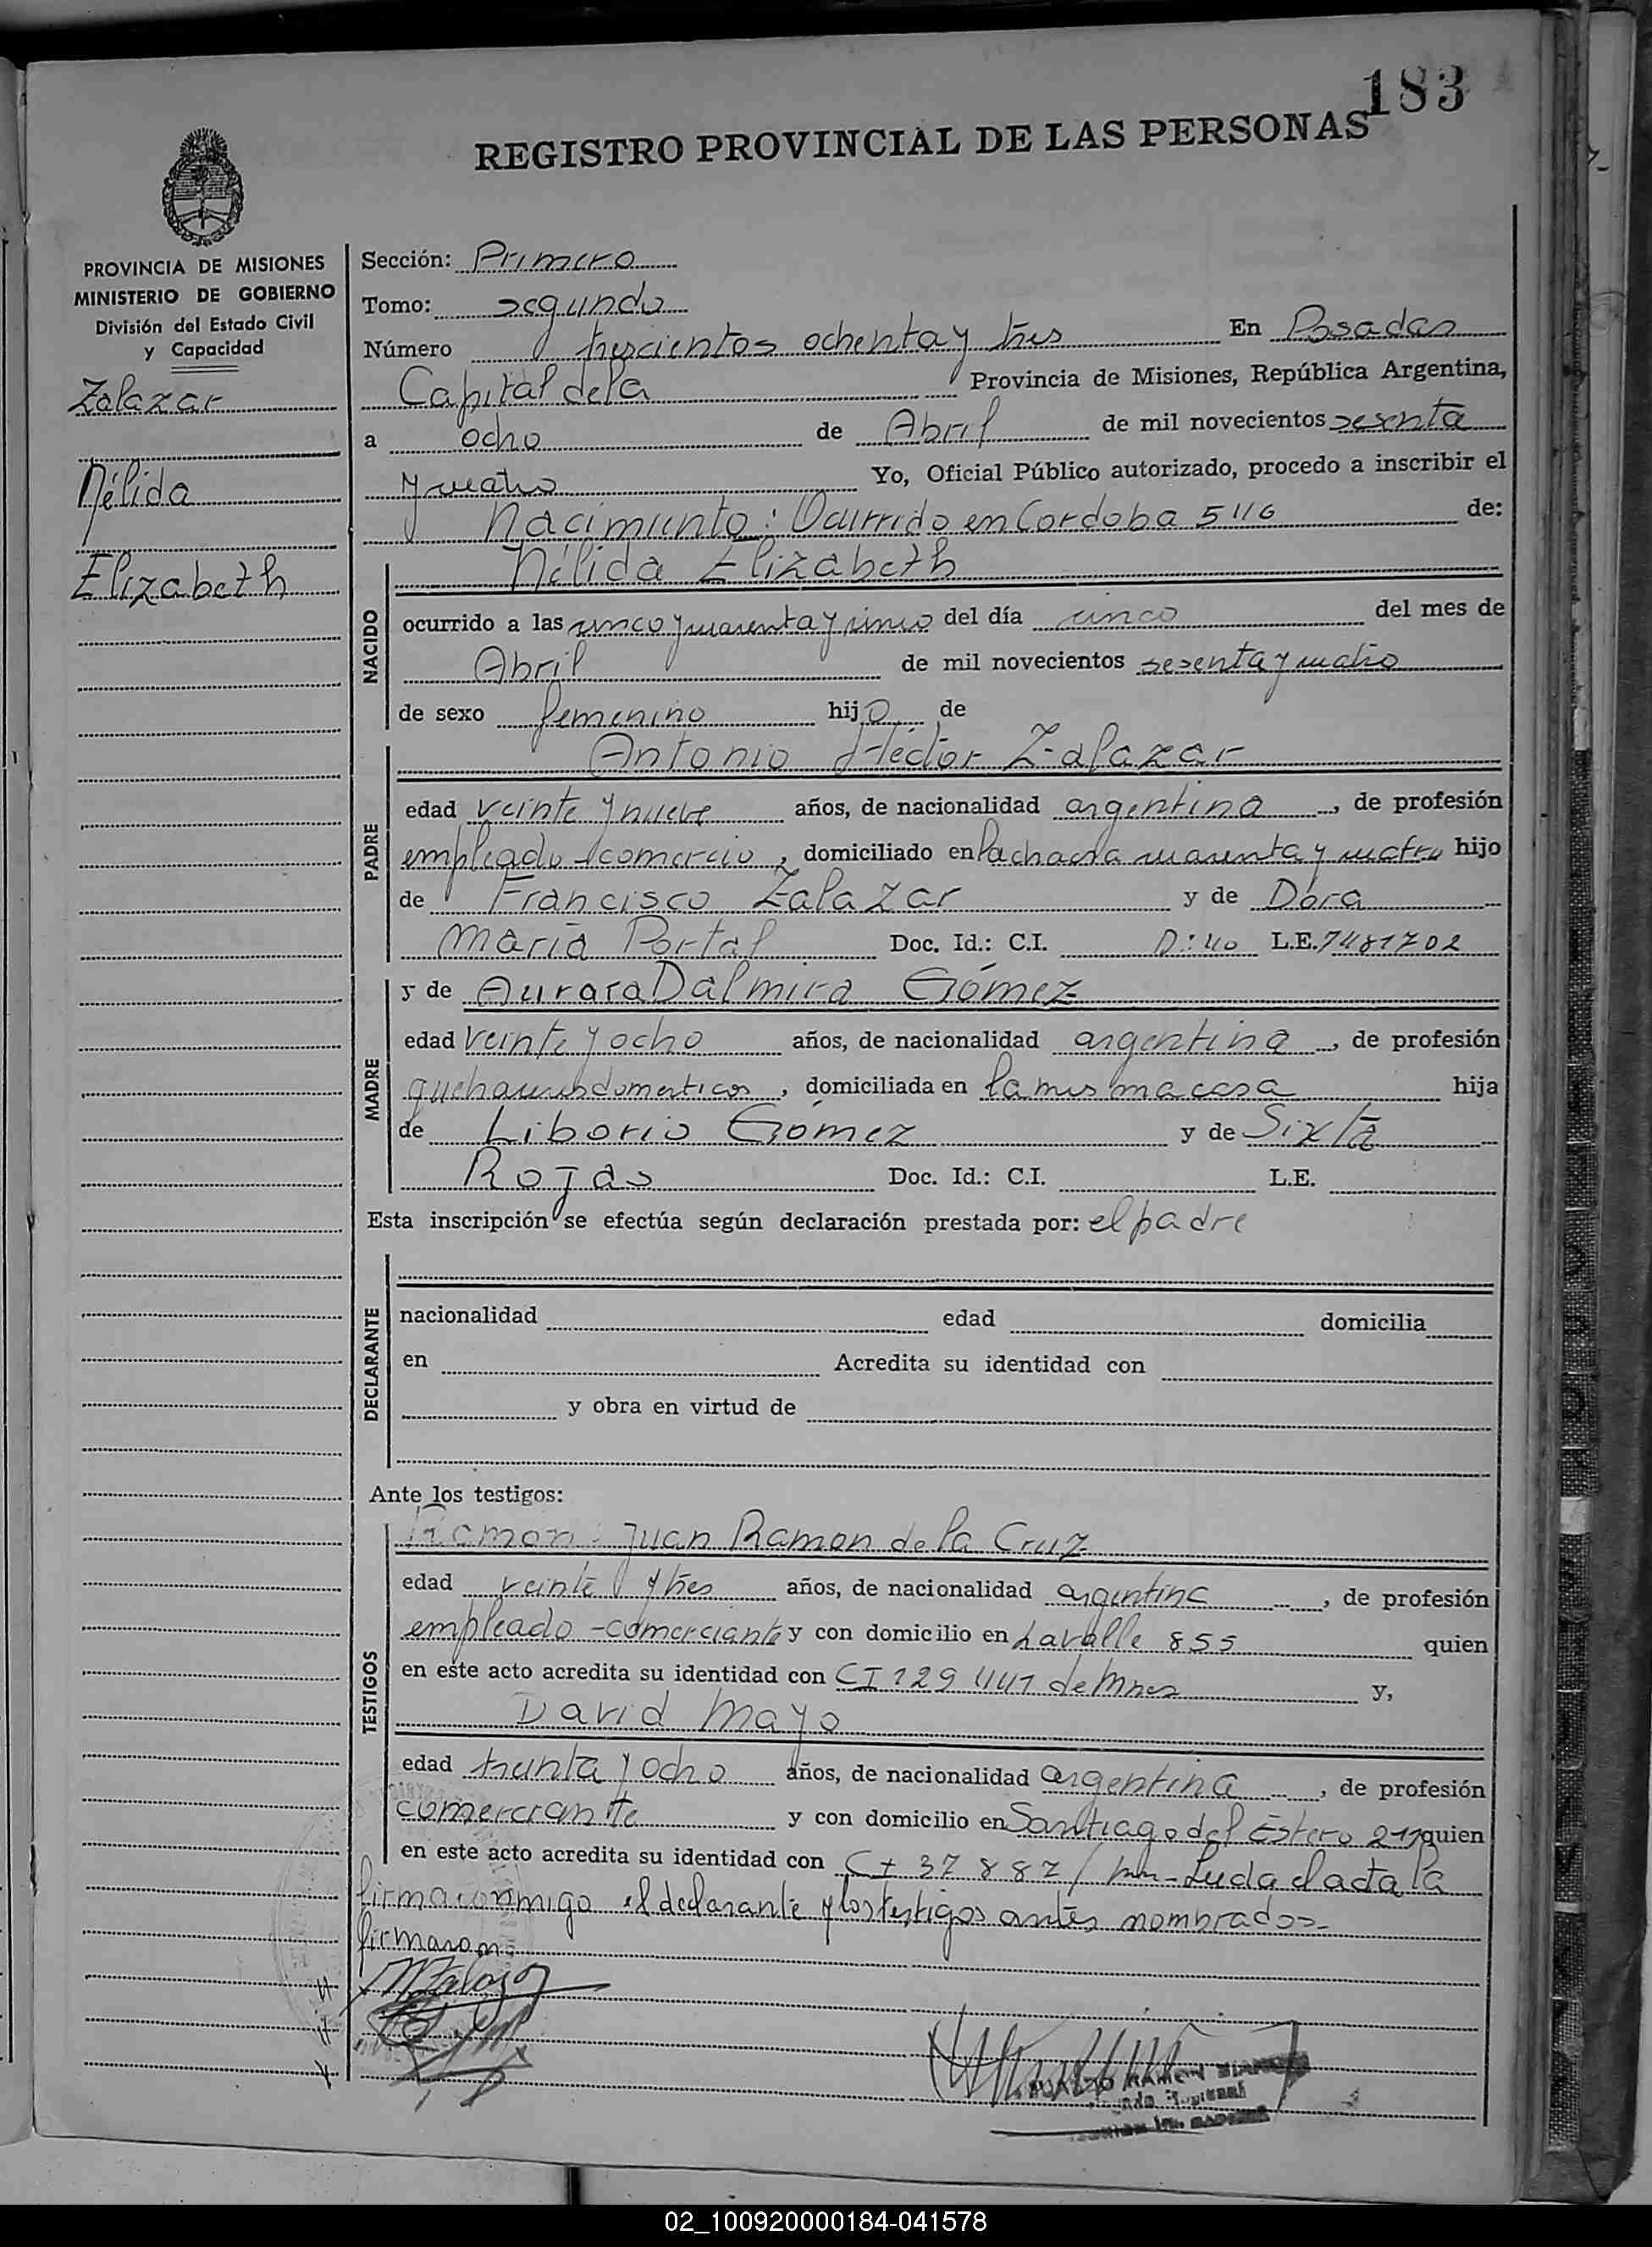 183
REGISTRO PROVINCIAL DE LAS PERSONAS
PROVINCIA DE MISIONES
MINISTERIO DE GOBIERNO
División del Estado Civil
y Capacidad
Zalazar
Nélida
Elizabeth
Sección: Primero
Tomo: segundo
Número trescientos ochenta y tres En Posadas
Capital de la Provincia de Misiones, República Argentina,
a ocho de Abril de mil novecientos sesenta
y cuatro Yo, Oficial Público autorizado, procedo a inscribir el
Nacimiento: Ocurrido en Cordoba 5116 de:
NACIDO
Nélida Elizabeth
ocurrido a las cinco y cuarenta y cinco del día cinco del mes de
Abril de mil novecientos sesenta y cuatro
de sexo femenino hijo de
PADRE
Antonio Héctor Zalazar
edad veinte y nueve años, de nacionalidad argentina, de profesión
empleado - comercio, domiciliado en la chacra cuarenta y cuatro hijo
de Francisco Zalazar y de Dora
María Portal Doc. Id.: C.I. D: 40 L.E. 7481702
MADRE
y de Aurora Dalmira Gómez
edad veinte y ocho años, de nacionalidad argentina, de profesión
quehaceres domesticos, domiciliada en la misma casa hija
de Liborio Gómez y de Sixta
Rojas Doc. Id.: C.I. L.E.
Esta inscripción se efectúa según declaración prestada por: el padre
DECLARANTE
nacionalidad edad domicilia
en Acredita su identidad con
y obra en virtud de
Ante los testigos:
TESTIGOS
Ramon: Juan Ramon de la Cruz
edad veinte y tres años, de nacionalidad argentina, de profesión
empleado - comerciante y con domicilio en Lavalle 855 quien
en este acto acredita su identidad con CI 129 441 de Mnes y,
David Mayo
edad treinta y ocho años, de nacionalidad argentina, de profesión
comerciante y con domicilio en Santiago del Estero 211 quien
en este acto acredita su identidad con CI 37 887 / Leida el acta la
firma conmigo el declarante y los testigos antes nombrados
firmaron:
RAMON
02_100920000184-041578